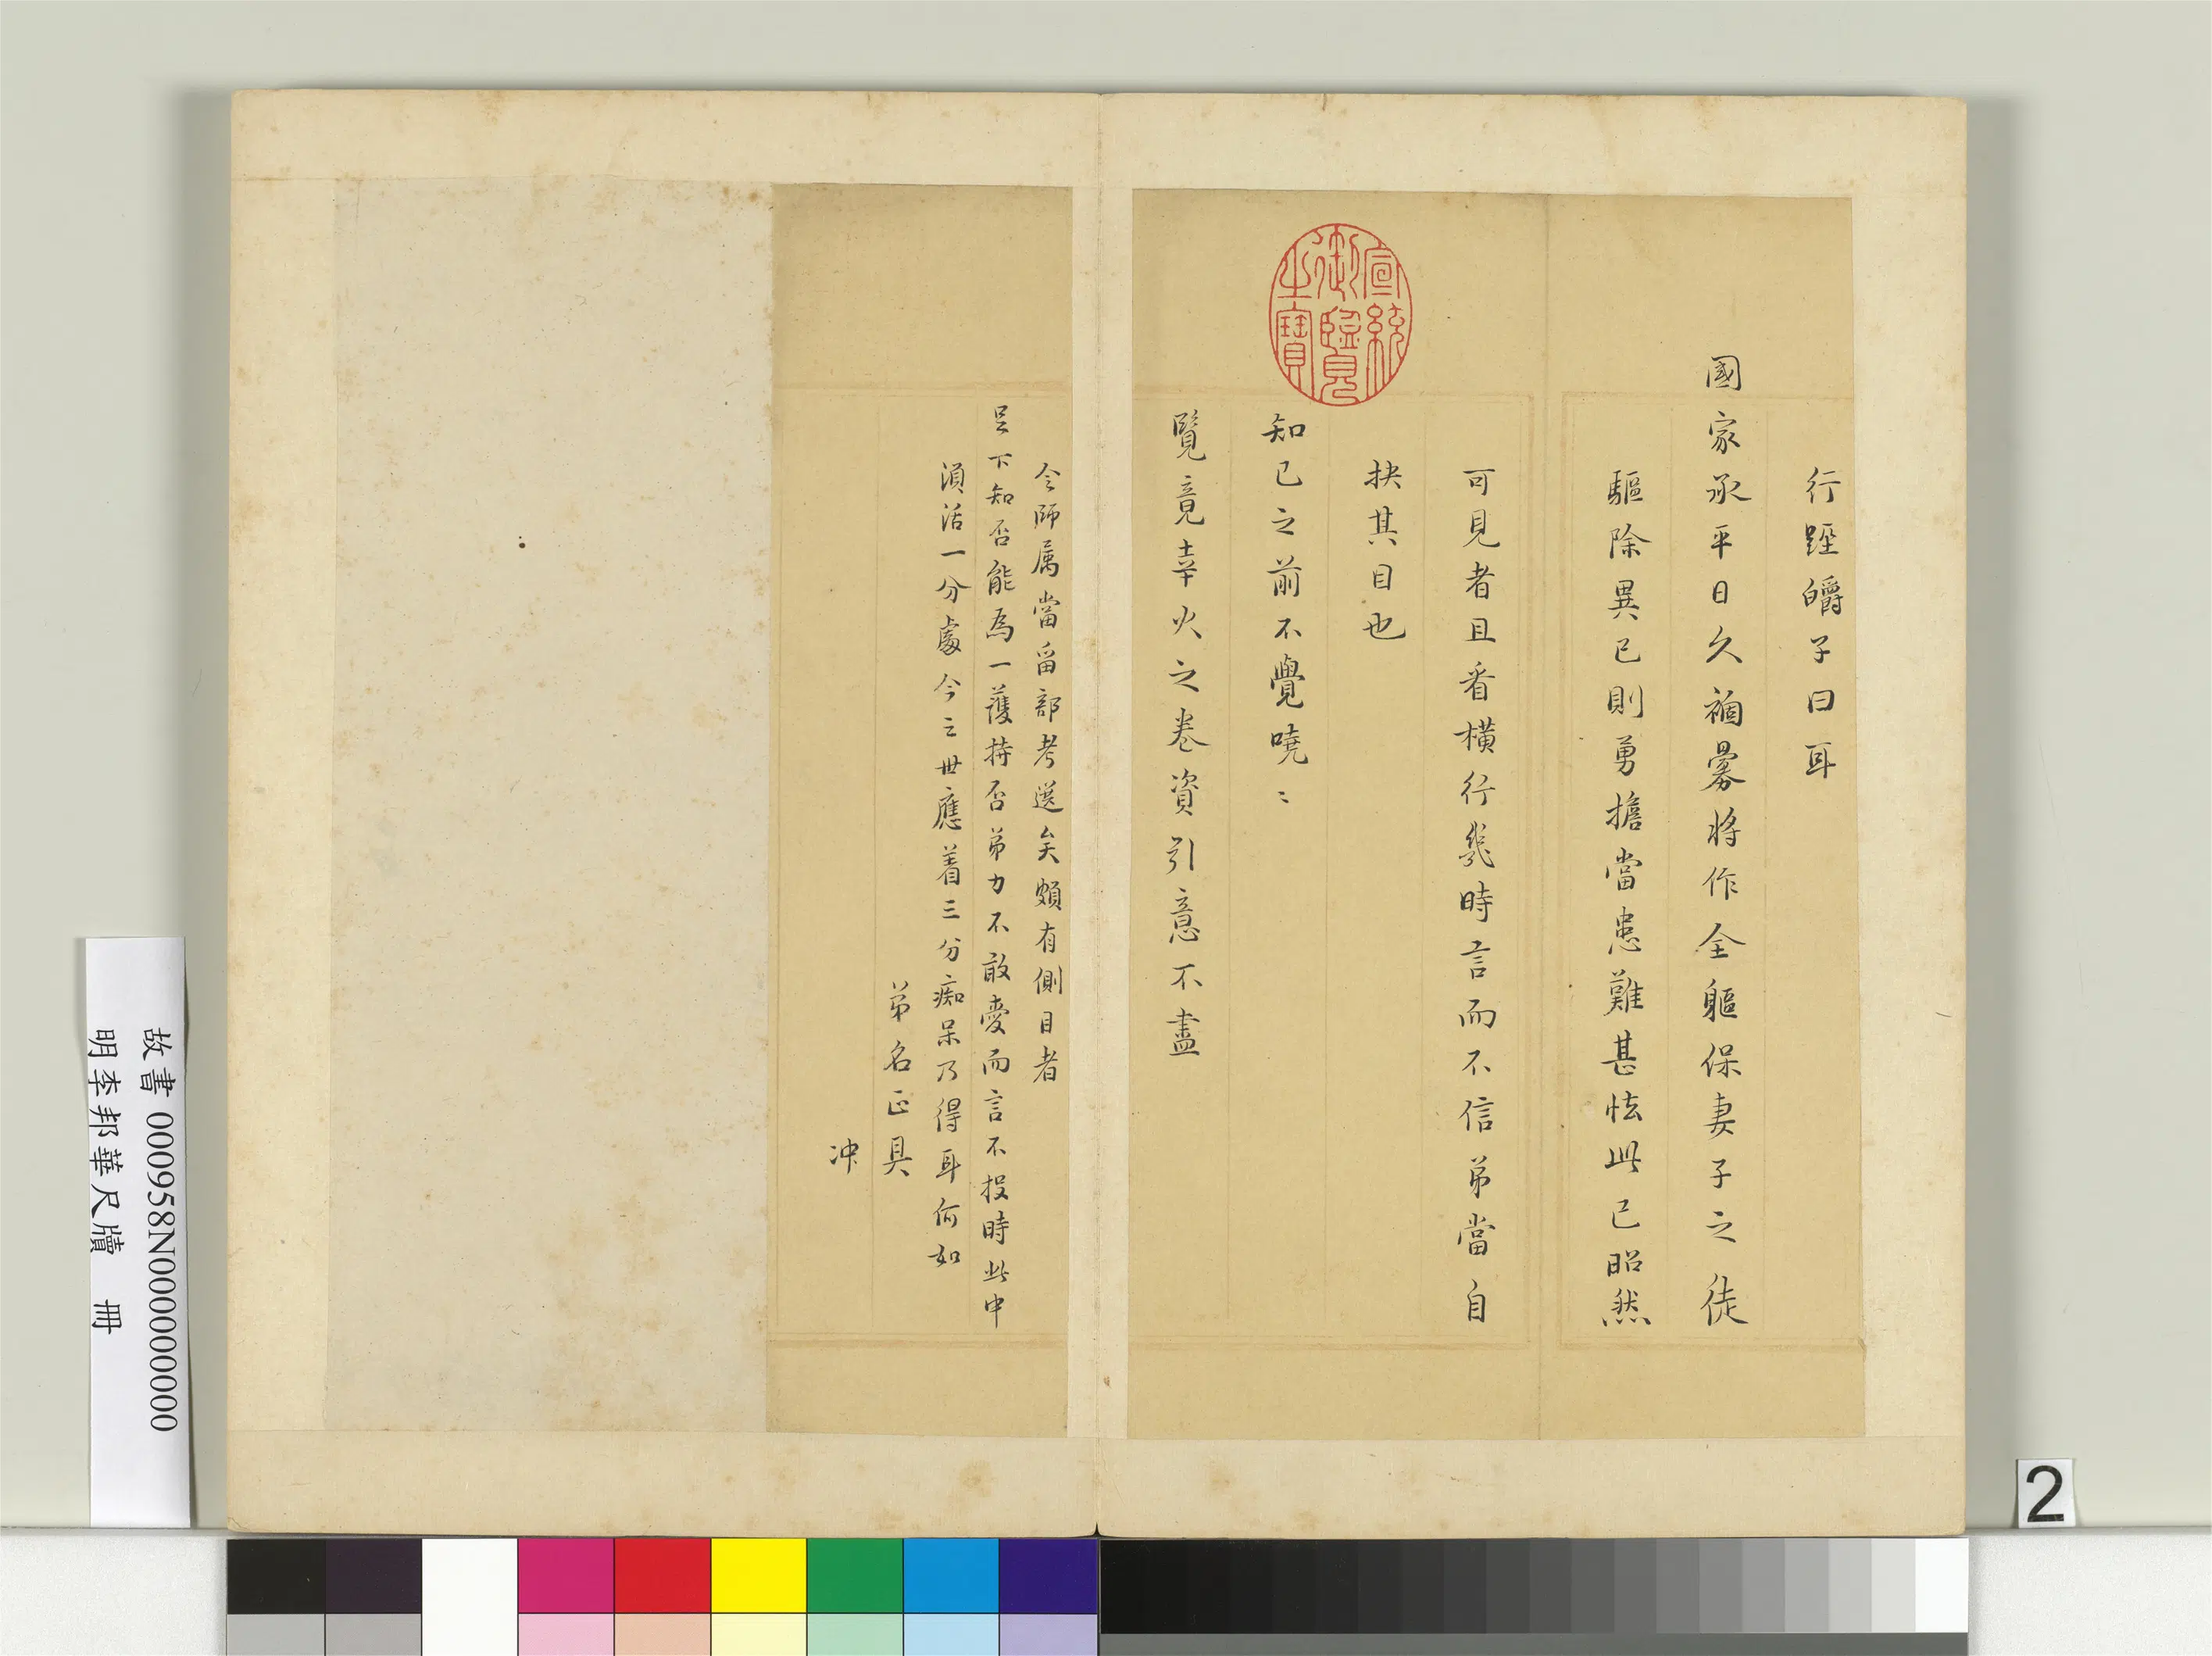 行踁皭子曰耳
國家承平日久禍釁將作全軀保妻子之徒
驅除異己則勇擔當患難甚怯此已昭然
可見者且看橫行幾時言而不信弟當自
抉其目也
知己之前不覺嘵〻
覽竟幸火之卷資引意不盡
宣統
御覽
之寶
令師属當留部考選矣頗有側目者
足下知否能為一護持否弟力不敢愛而言不投時此中
須活一分處今之世應着三分痴呆乃得耳何如
弟名正具
冲
故書 000958N000000000
明李邦華尺牘 冊
2